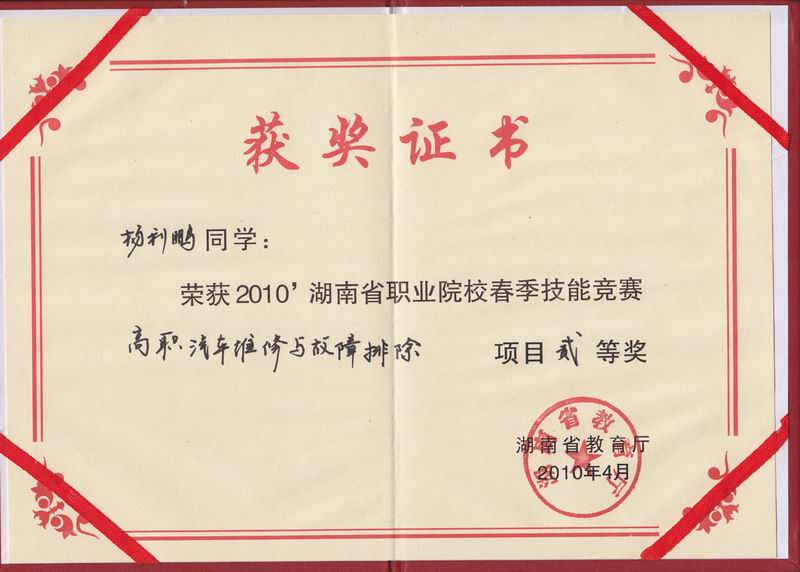 获奖证书
杨利鹏同学：
荣获2010’湖南省职业院校春季技能竞赛
高职汽车维修与故障排除 项目贰等奖
湖南省教育厅
湖南省教育厅
2010年4月